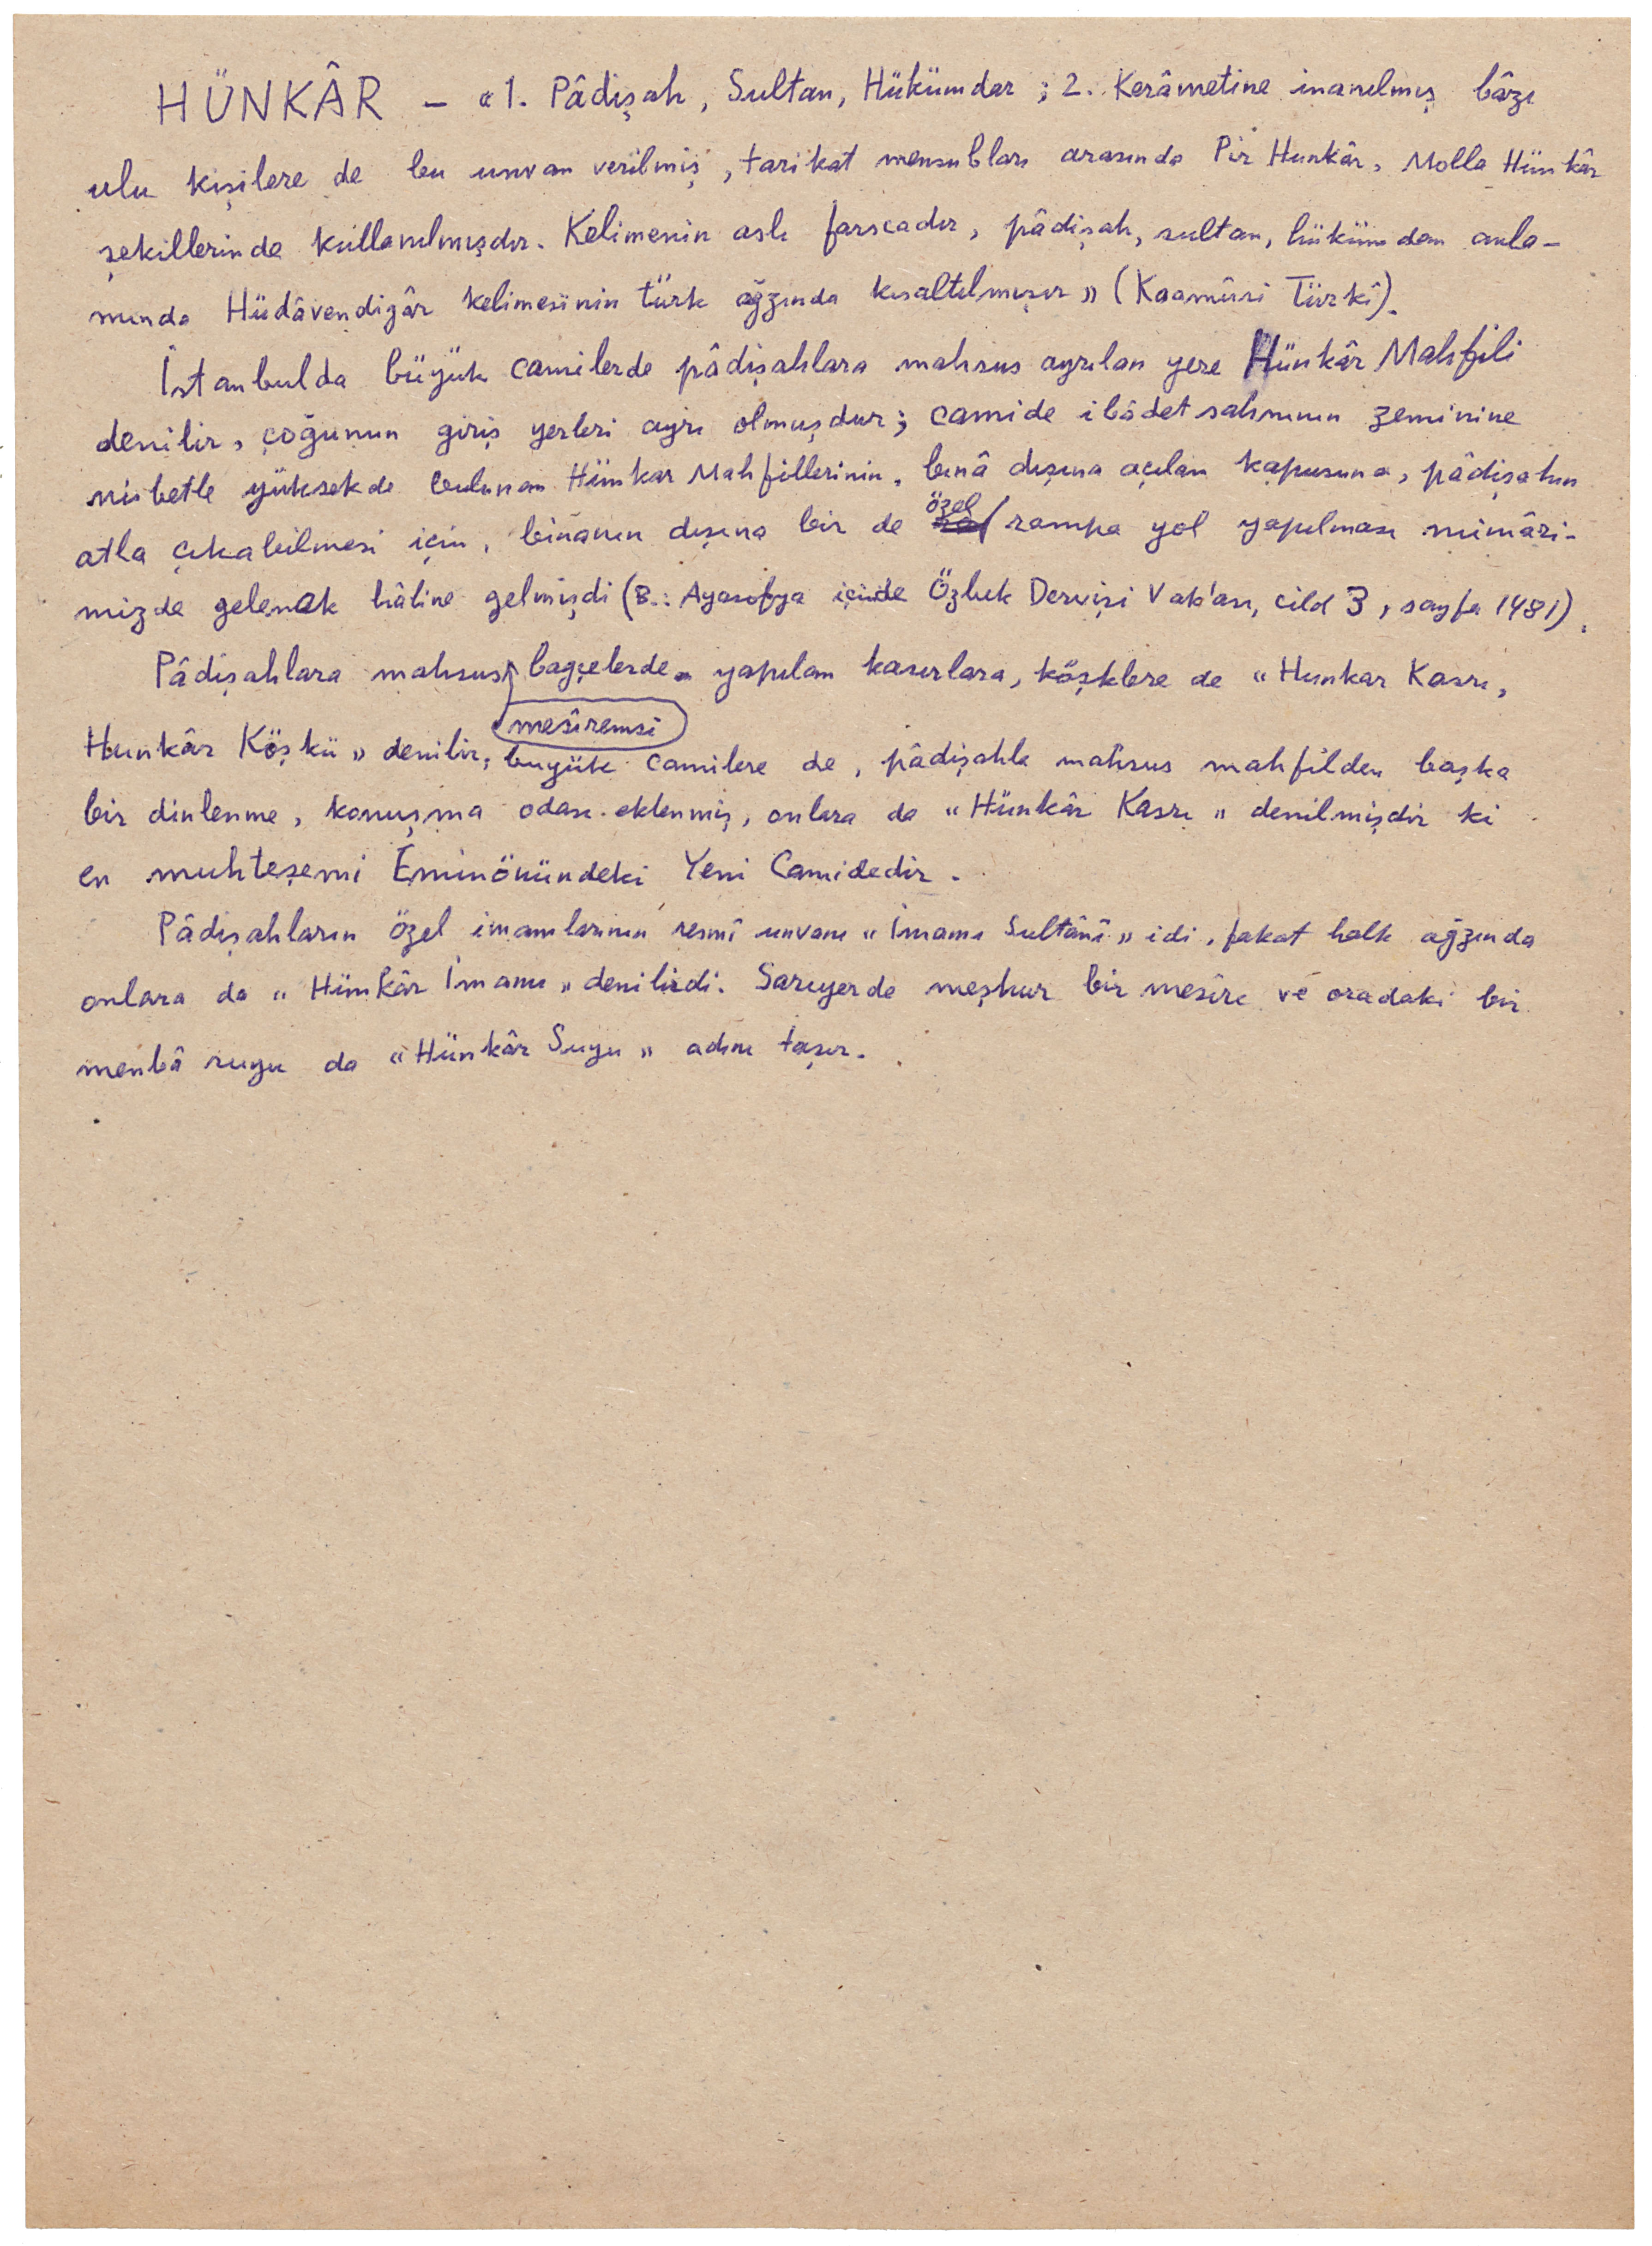 HÜNKÂR – «1. Pâdişah, Sultan, Hükümdar ; 2. Kerâmetine inanılmış bâzı
ulu kişilere de bu unvan verilmiş, tarikat mensubları arasında Pir Hunkâr, Molla Hünkâr
şekillerinde kullanılmışdır. Kelimenin aslı farscadır, pâdişah, sultan, hükümdar anla-
mında Hüdâvendigâr kelimesinin türk ağzında kısaltılmışır» (Kaamûsi Türkî).
İstanbulda büyük camilerde pâdişahlara mahsus ayrılan yere Hünkâr Mahfili
denilir, çoğunun giriş yerleri ayrı olmuşdur; camide ibâdet sahnının zeminine
nisbetle yüksekde bulunan Hünkar Mahfillerinin, binâ dışına açılan kapusuna, pâdişahın
atla çıkabilmesi için, binanın dışına bir de özel rampa yol yapılması mimâri-
mizde gelenak hâline gelmişdi (B.: Ayasofya içinde Özbek Dervişi Vak'ası, cild 3, sayfa 1481).
Pâdişahlara mahsus mesîremsi bağçelerde yapılan kasırlara, köşklere de «Hunkar Kasrı,
Hunkâr Köşkü» denilir; buyük camilere de, pâdişahla mahsus mahfilden başka
bir dinlenme, konuşma odası eklenmiş, onlara da «Hünkâr Kasrı» denilmişdir ki
en muhteşemi Eminönündeki Yeni Camidedir.
Pâdişahların özel imamlarının resmî unvanı «İmamı Sultânî» idi, fakat halk ağzında
onlara da «Hünkâr İmamı» denilirdi. Sarıyerde meşhur bir mesîre ve oradaki bir
menbâ suyu da «Hünkâr Suyu» adını taşır.